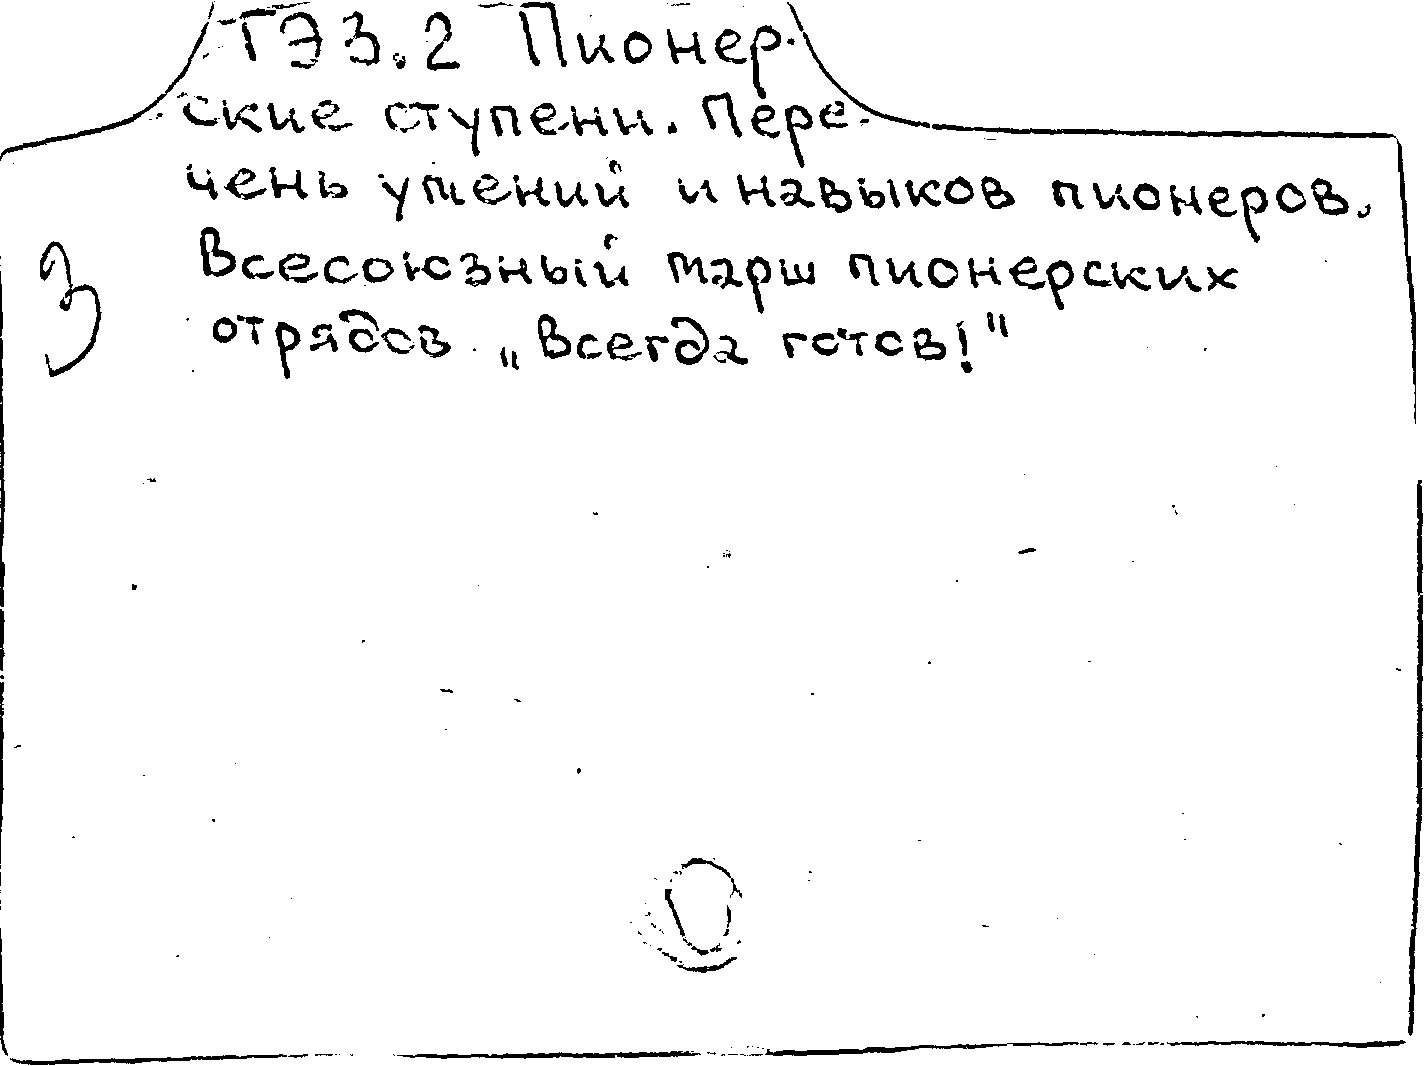 ТЭ3.2 Пионер-
ские ступени. Пере-
чень умений и навыков пионеров.
3 Всесоюзный марш пионерских
отрядов „Всегда готов!"